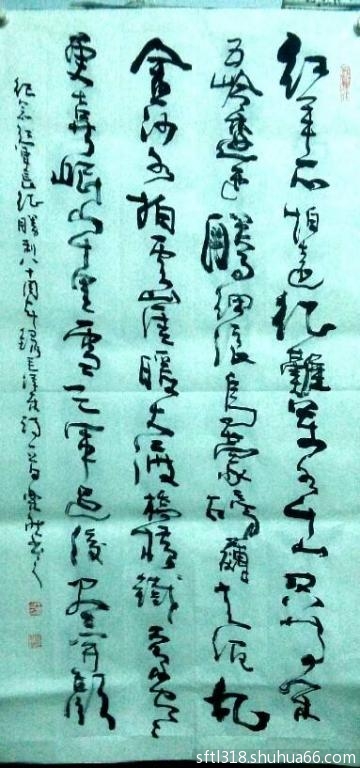 紅軍不怕遠征難萬水千山只等闲
五岭逶迤騰細浪烏蒙磅礴走泥丸
金沙水拍雲崖暖大渡橋横鐵索寒
更喜岷山千里雪三軍过後尽開颜
纪念红军長征勝利八十周年錄毛泽东诗一首
sftl318.shuhua66.com